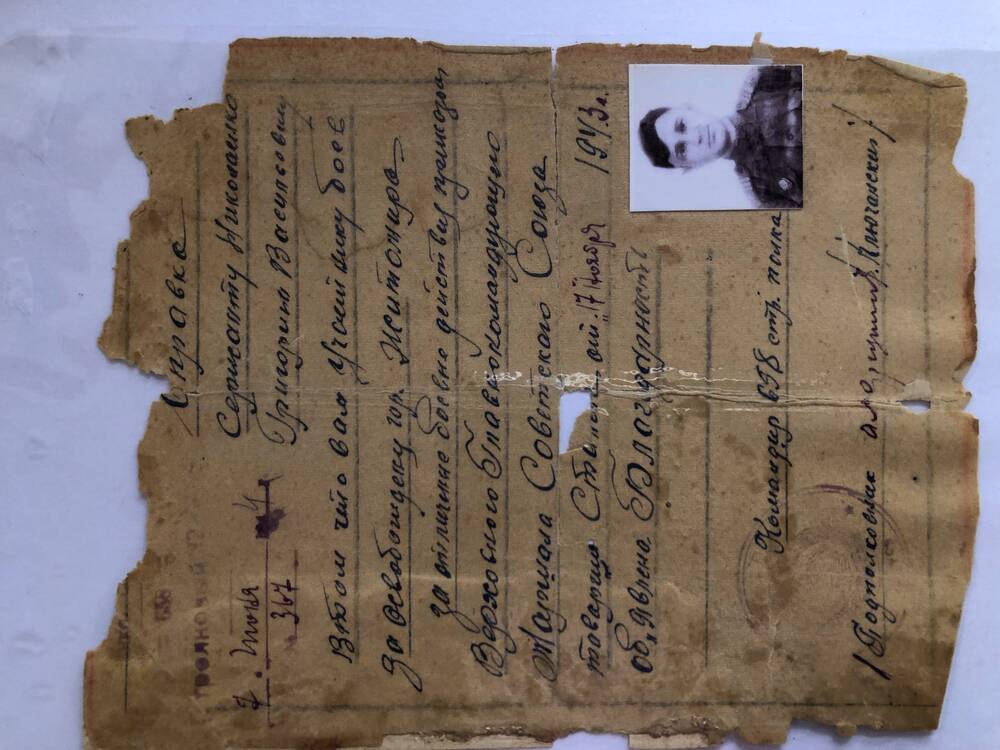 658
Справка
Сержанту Николаенко
7. Июня 4
Григорию Васильевичу
367
Втом что вам Участнику боев
За освобождену гор. Житомира
за отличные боевые действия приказом
Верховного Главнокомандующего
Маршала Советского Союза
товарища Сталина от "17 Ноября 1943г.
об"явлена Благодарность
Командир 658 стр. полка
/Подполковник /Ключанский/